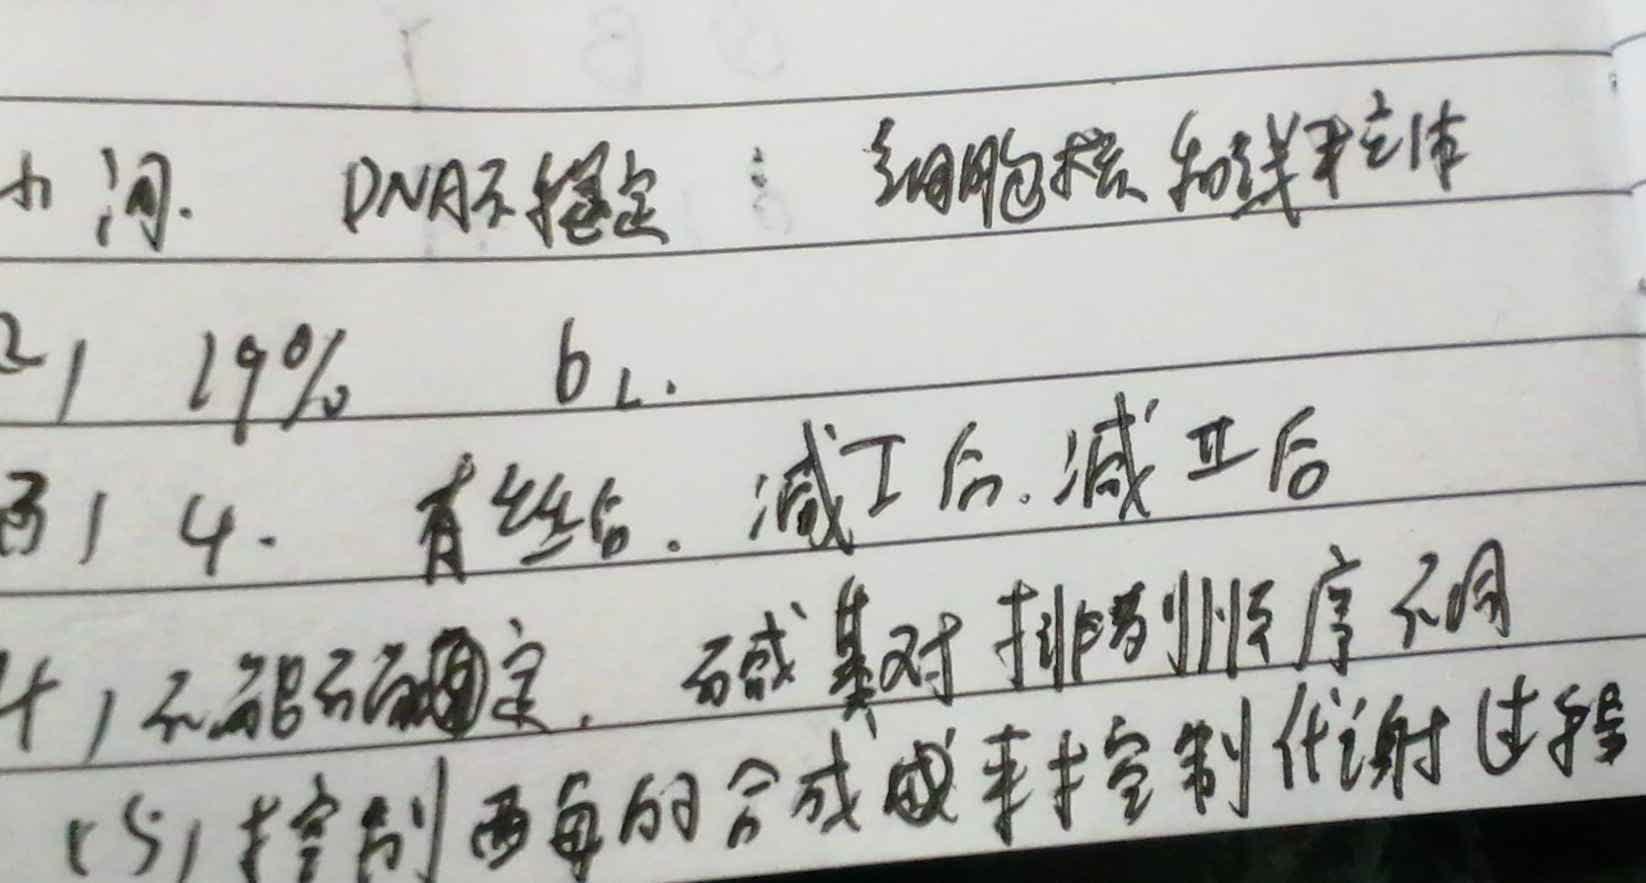 (1) 间. DNA不稳定 细胞核和线粒体
2) 19% b1.
3) 4. 有丝后. 减I后. 减II后
4) 不能确定. 碱基对排列顺序不同
(5) 控制酶的合成来控制代谢过程